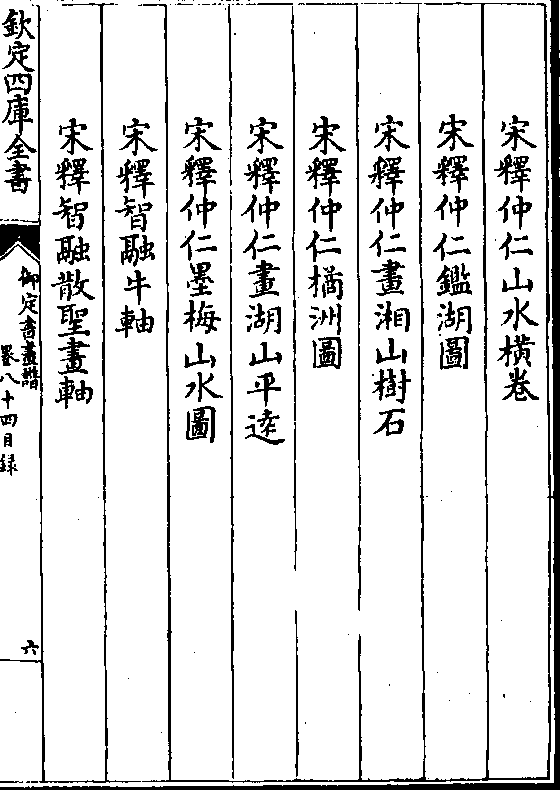 宋釋仲仁山水橫卷
宋釋仲仁鑑湖圖
宋釋仲仁畫湘山樹石
宋釋仲仁橘洲圖
宋釋仲仁畫湖山平逺
宋釋仲仁墨梅山水圖
宋釋智融牛軸
宋釋智融散聖畫軸
欽定四庫全書
御定書畫譜
卷八十四目録
六